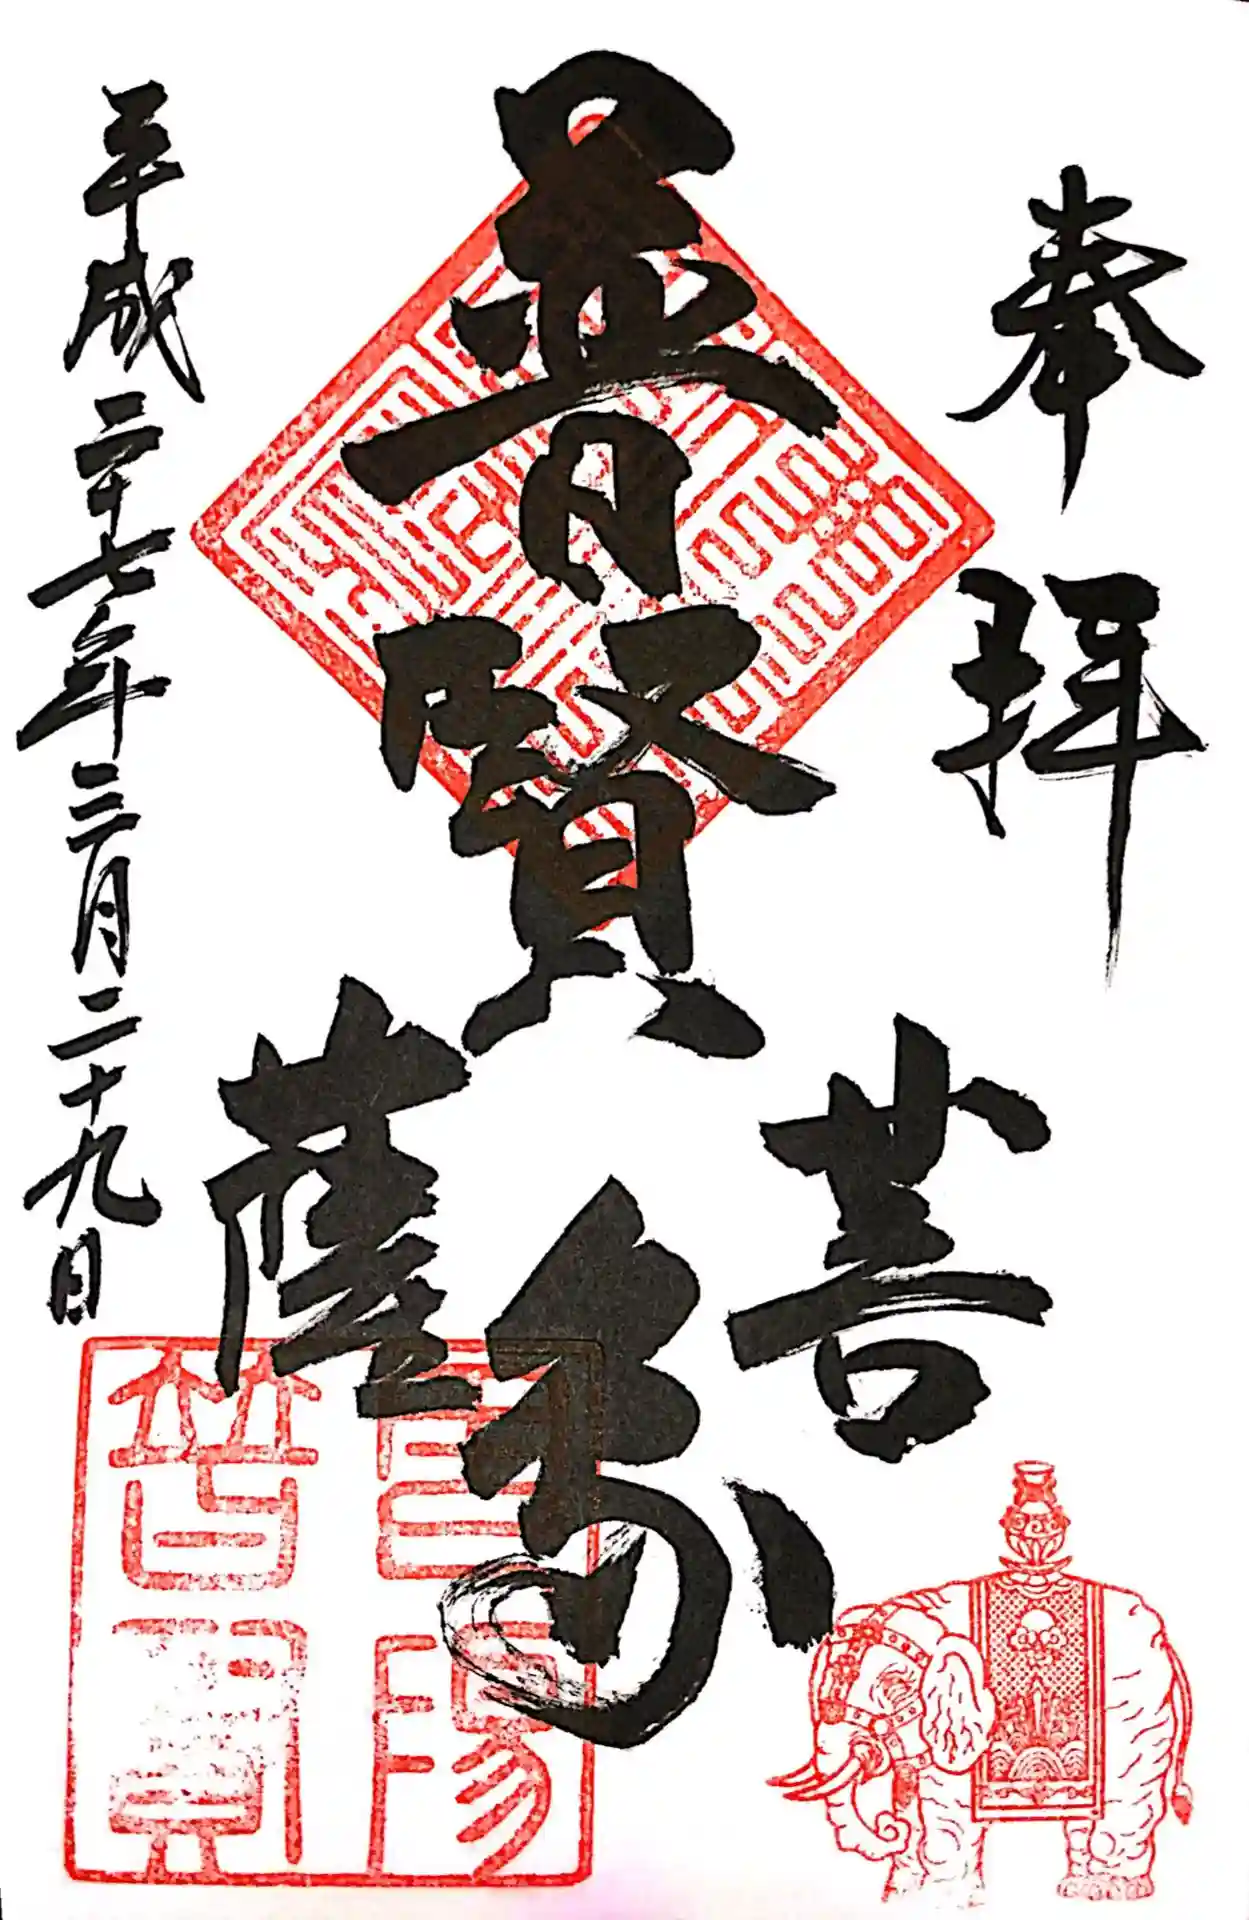 奉拝
普賢
菩薩
象
平成二十七年三月二十九日